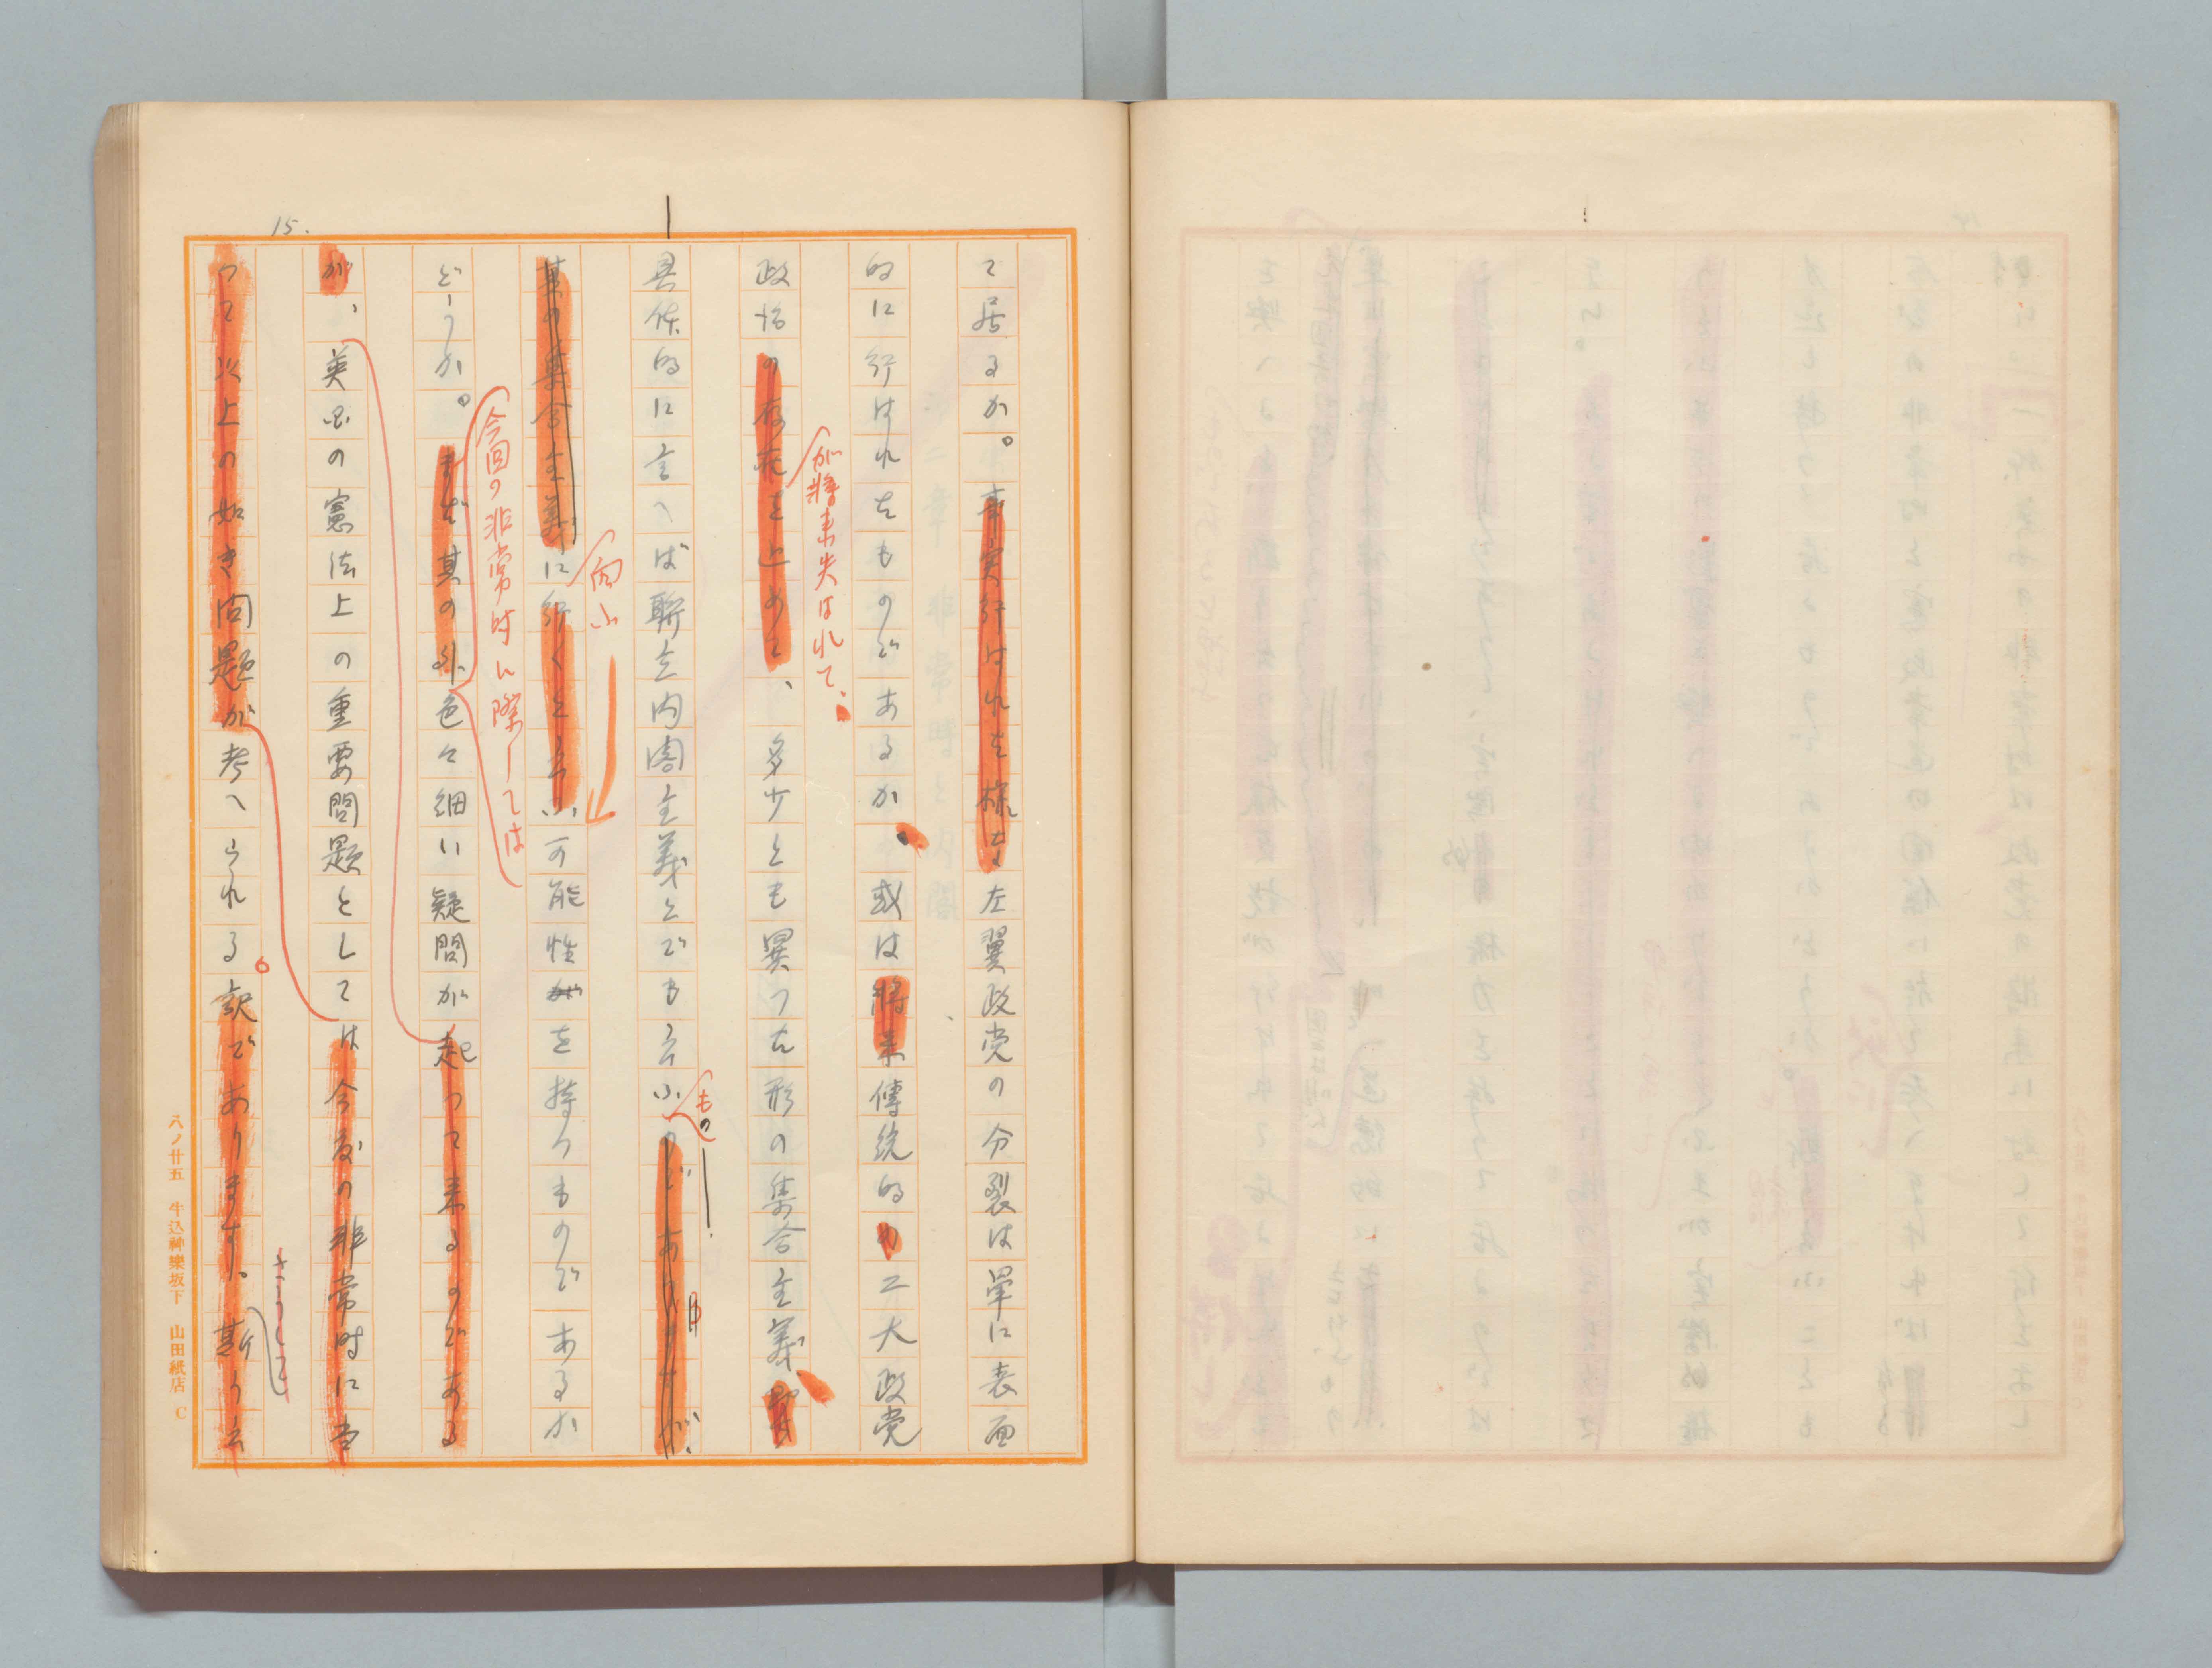 15.
て居るか。事実行はれた様な左翼政党の分裂は単に表面
的に行はれたものであるか、或は将来傳統的の二大政党
が将来失はれて、
政治の存在を止めて、多少とも異つた形の集合主義
具体的に言へば聯立内閣主義とでも言ふのでありますが、
もの
其の集合主義に行くと言ふ可能性がを持つものであるか
向ふ
どうか。まだ其の外色々細い疑問が起つて来るのである
今回の非常時に際しては
が、英国の憲法上の重要問題としては今度の非常時に当
つて以上の如き問題が考へられる訳であります。斯う言
八ノ廿五 牛込神樂坂下 山田紙店 C